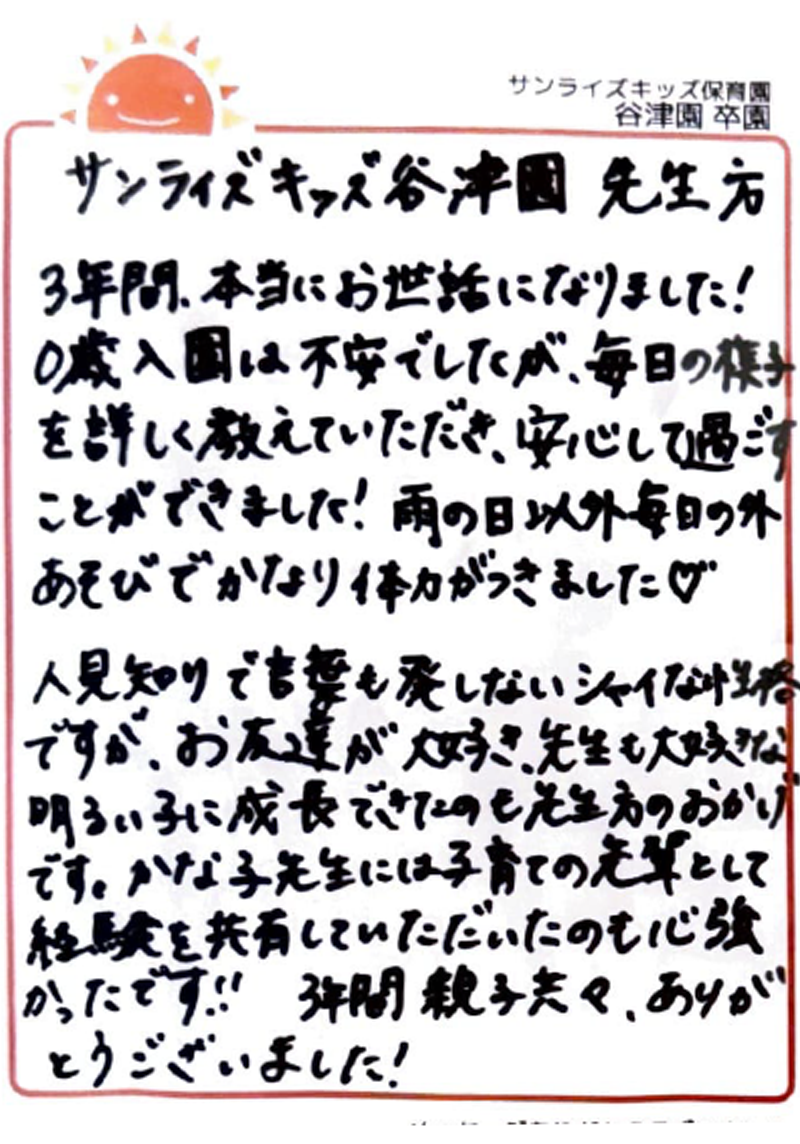 サンライズキッズ保育園
谷津園 卒園
サンライズキッズ谷津園 先生方
3年間、本当にお世話になりました!
0歳入園は不安でしたが、毎日の様子
を詳しく教えていただき、安心して過ごす
ことができました! 雨の日以外毎日の外
あそびでかなり体力がつきました♡
人見知りで言葉も発しないシャイな性格
ですが、お友達が大好き、先生も大好きな
明るい子に成長できたのも先生方のおかげ
です。かな子先生には子育ての先輩として
経験を共有していただいたのも心強
かったです!! 3年間親子共々、ありが
とうございました!